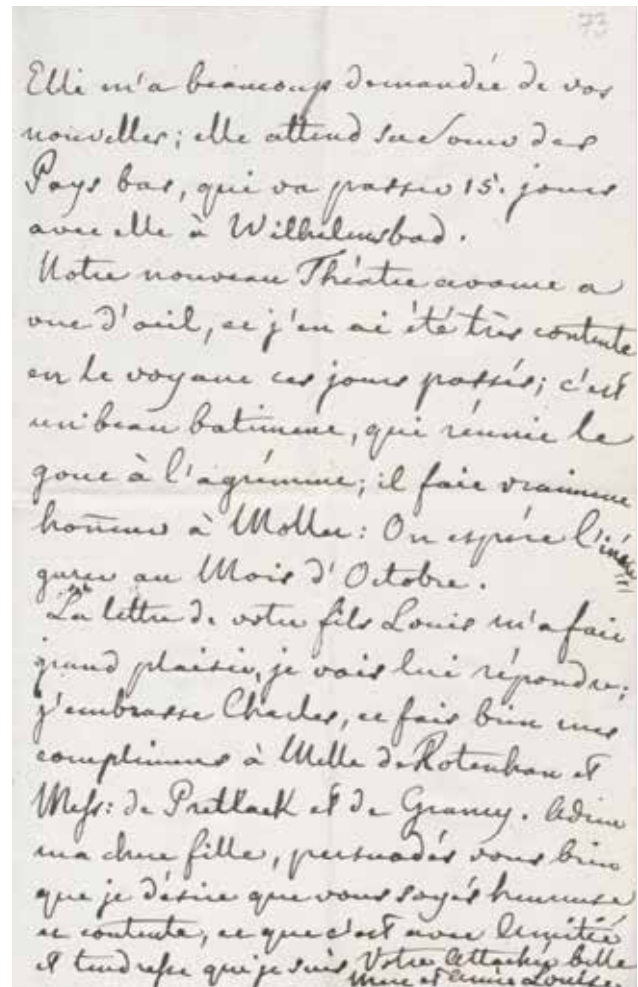 73
Elle m'a beaucoup demandée de vos
nouvelles; elle attend sa sœur des
Pays bas, qui va passer 15. jours
avec elle à Wilhelmsbad.
Notre nouveau Théatre avance a
vue d'œil, et j'en ai été très contente
en le voyant ces jours passés; c'est
un beau batiment, qui réunit le
gout à l'agrément; il fait vraiment
hoñeur à Moller: On espére l'inau
gurer au Mois d'Octobre.
La lettre de votre fils Louis m'a fait
grand plaisir, je vais lui répondre;
j'embrasse Charles, et fais bien mes
complimens à Melle de Rotenhan et
Mess: de Prettlack et de Grancy. Adieu
ma chere fille, persuadés vous bien
que je désire que vous soyés heureuse
et contente, et que c'est avec Amitié
et tendresse que je suis Votre Attachée belle
Mere et Amie Louise.